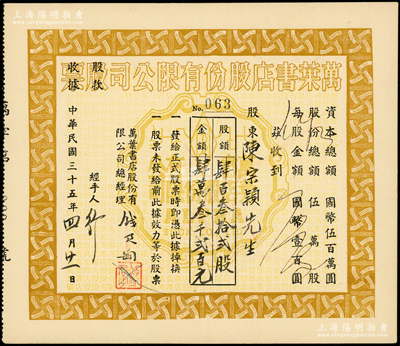 萬葉書店股份有限公司股票
No. 063
資本總額 國幣伍百萬圓
股份總額 伍萬股
每股金額 國幣壹百圓
茲收到
股東陳宗穎先生
股額 肆百叁拾弍股
金額 肆萬叁千弍百元
一發給正式股票時即憑此據掉換
一股票未發給前此據效力等於股票
萬葉書店股份有
限公司總經理
經手人
中華民國三十五年四月廿一日
股款
收據